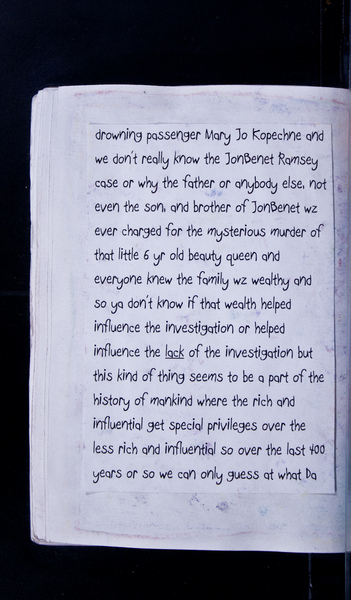 drowning passenger Mary Jo Kopechne and
we don't really know the JonBenet Ramsey
case or why the father or anybody else, not
even the son, and brother of JonBenet wz
ever charged for the mysterious murder of
that little 6 yr old beauty queen and
everyone knew the family wz wealthy and
so ya don't know if that wealth helped
influence the investigation or helped
influence the lack of the investigation but
this kind of thing seems to be a part of the
history of mankind where the rich and
influential get special privileges over the
less rich and influential so over the last 400
years or so we can only guess at what Da